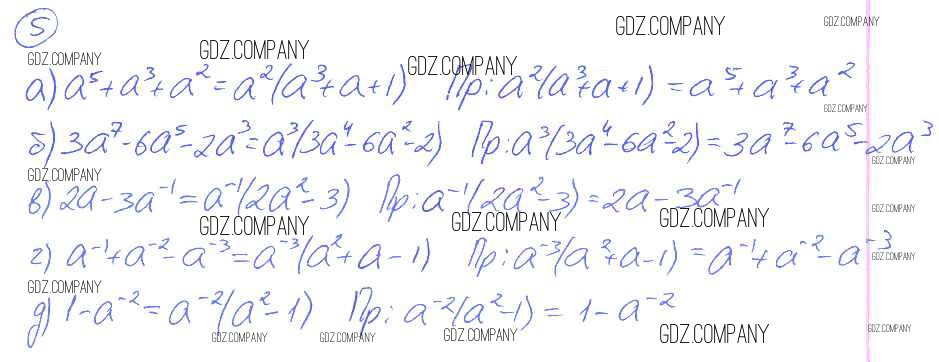 5
GDZ.COMPANY GDZ.COMPANY
GDZ.COMPANY GDZ.COMPANY GDZ.COMPANY
а) a⁵+a³+a²=a²(a³+a+1) Пр: a²(a³+a+1)=a⁵+a³+a²
GDZ.COMPANY
б) 3a⁷-6a⁵-2a³=a³(3a⁴-6a²-2) Пр: a³(3a⁴-6a²-2)=3a⁷-6a⁵-2a³
GDZ.COMPANY GDZ.COMPANY
в) 2a-3a⁻¹=a⁻¹(2a²-3) Пр: a⁻¹(2a²-3)=2a-3a⁻¹
GDZ.COMPANY GDZ.COMPANY GDZ.COMPANY GDZ.COMPANY
г) a⁻¹+a⁻²-a⁻³=a⁻³(a²+a-1) Пр: a⁻³(a²+a-1)=a⁻¹+a⁻²-a⁻³
GDZ.COMPANY GDZ.COMPANY
д) 1-a⁻²=a⁻²(a²-1) Пр: a⁻²(a²-1)=1-a⁻²
GDZ.COMPANY GDZ.COMPANY GDZ.COMPANY GDZ.COMPANY GDZ.COMPANY